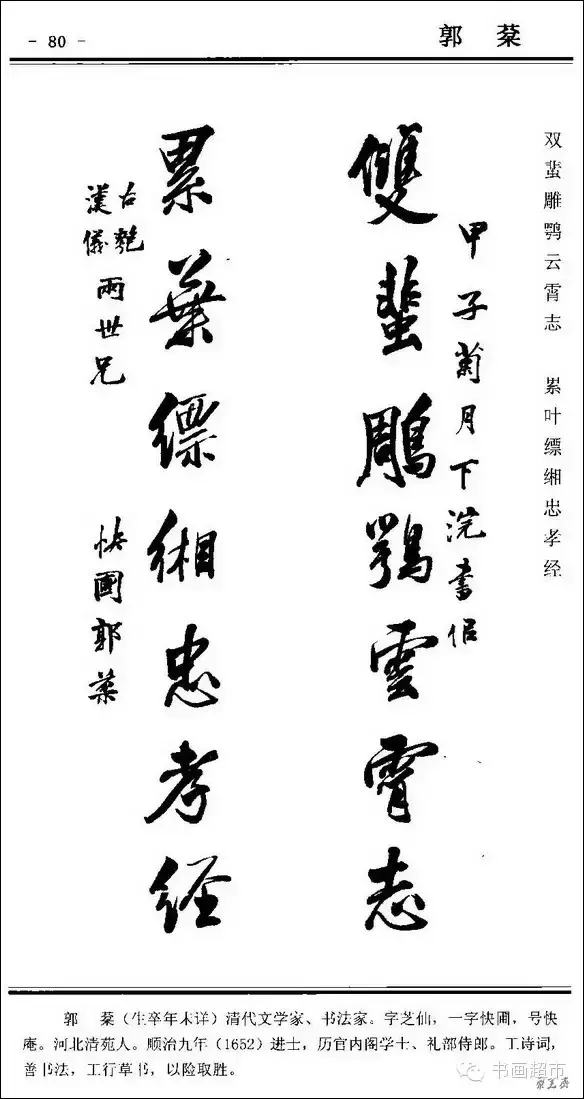 - 80 -
郭 棻
双蜚雕鹗云霄志 累叶缥缃忠孝经
甲子菊月下浣書佀
雙蜚鵰鶚雲霄志
累葉縹緗忠孝经
漢儀
兩世兄
快圃郭棻
郭 棻(生卒年未详)清代文学家、书法家。字芝仙,一字快圃,号快
庵。河北清苑人。顺治九年(1652)进士,历官内阁学士、礼部侍郎。工诗词,
善书法,工行草书,以险取胜。
书画超市